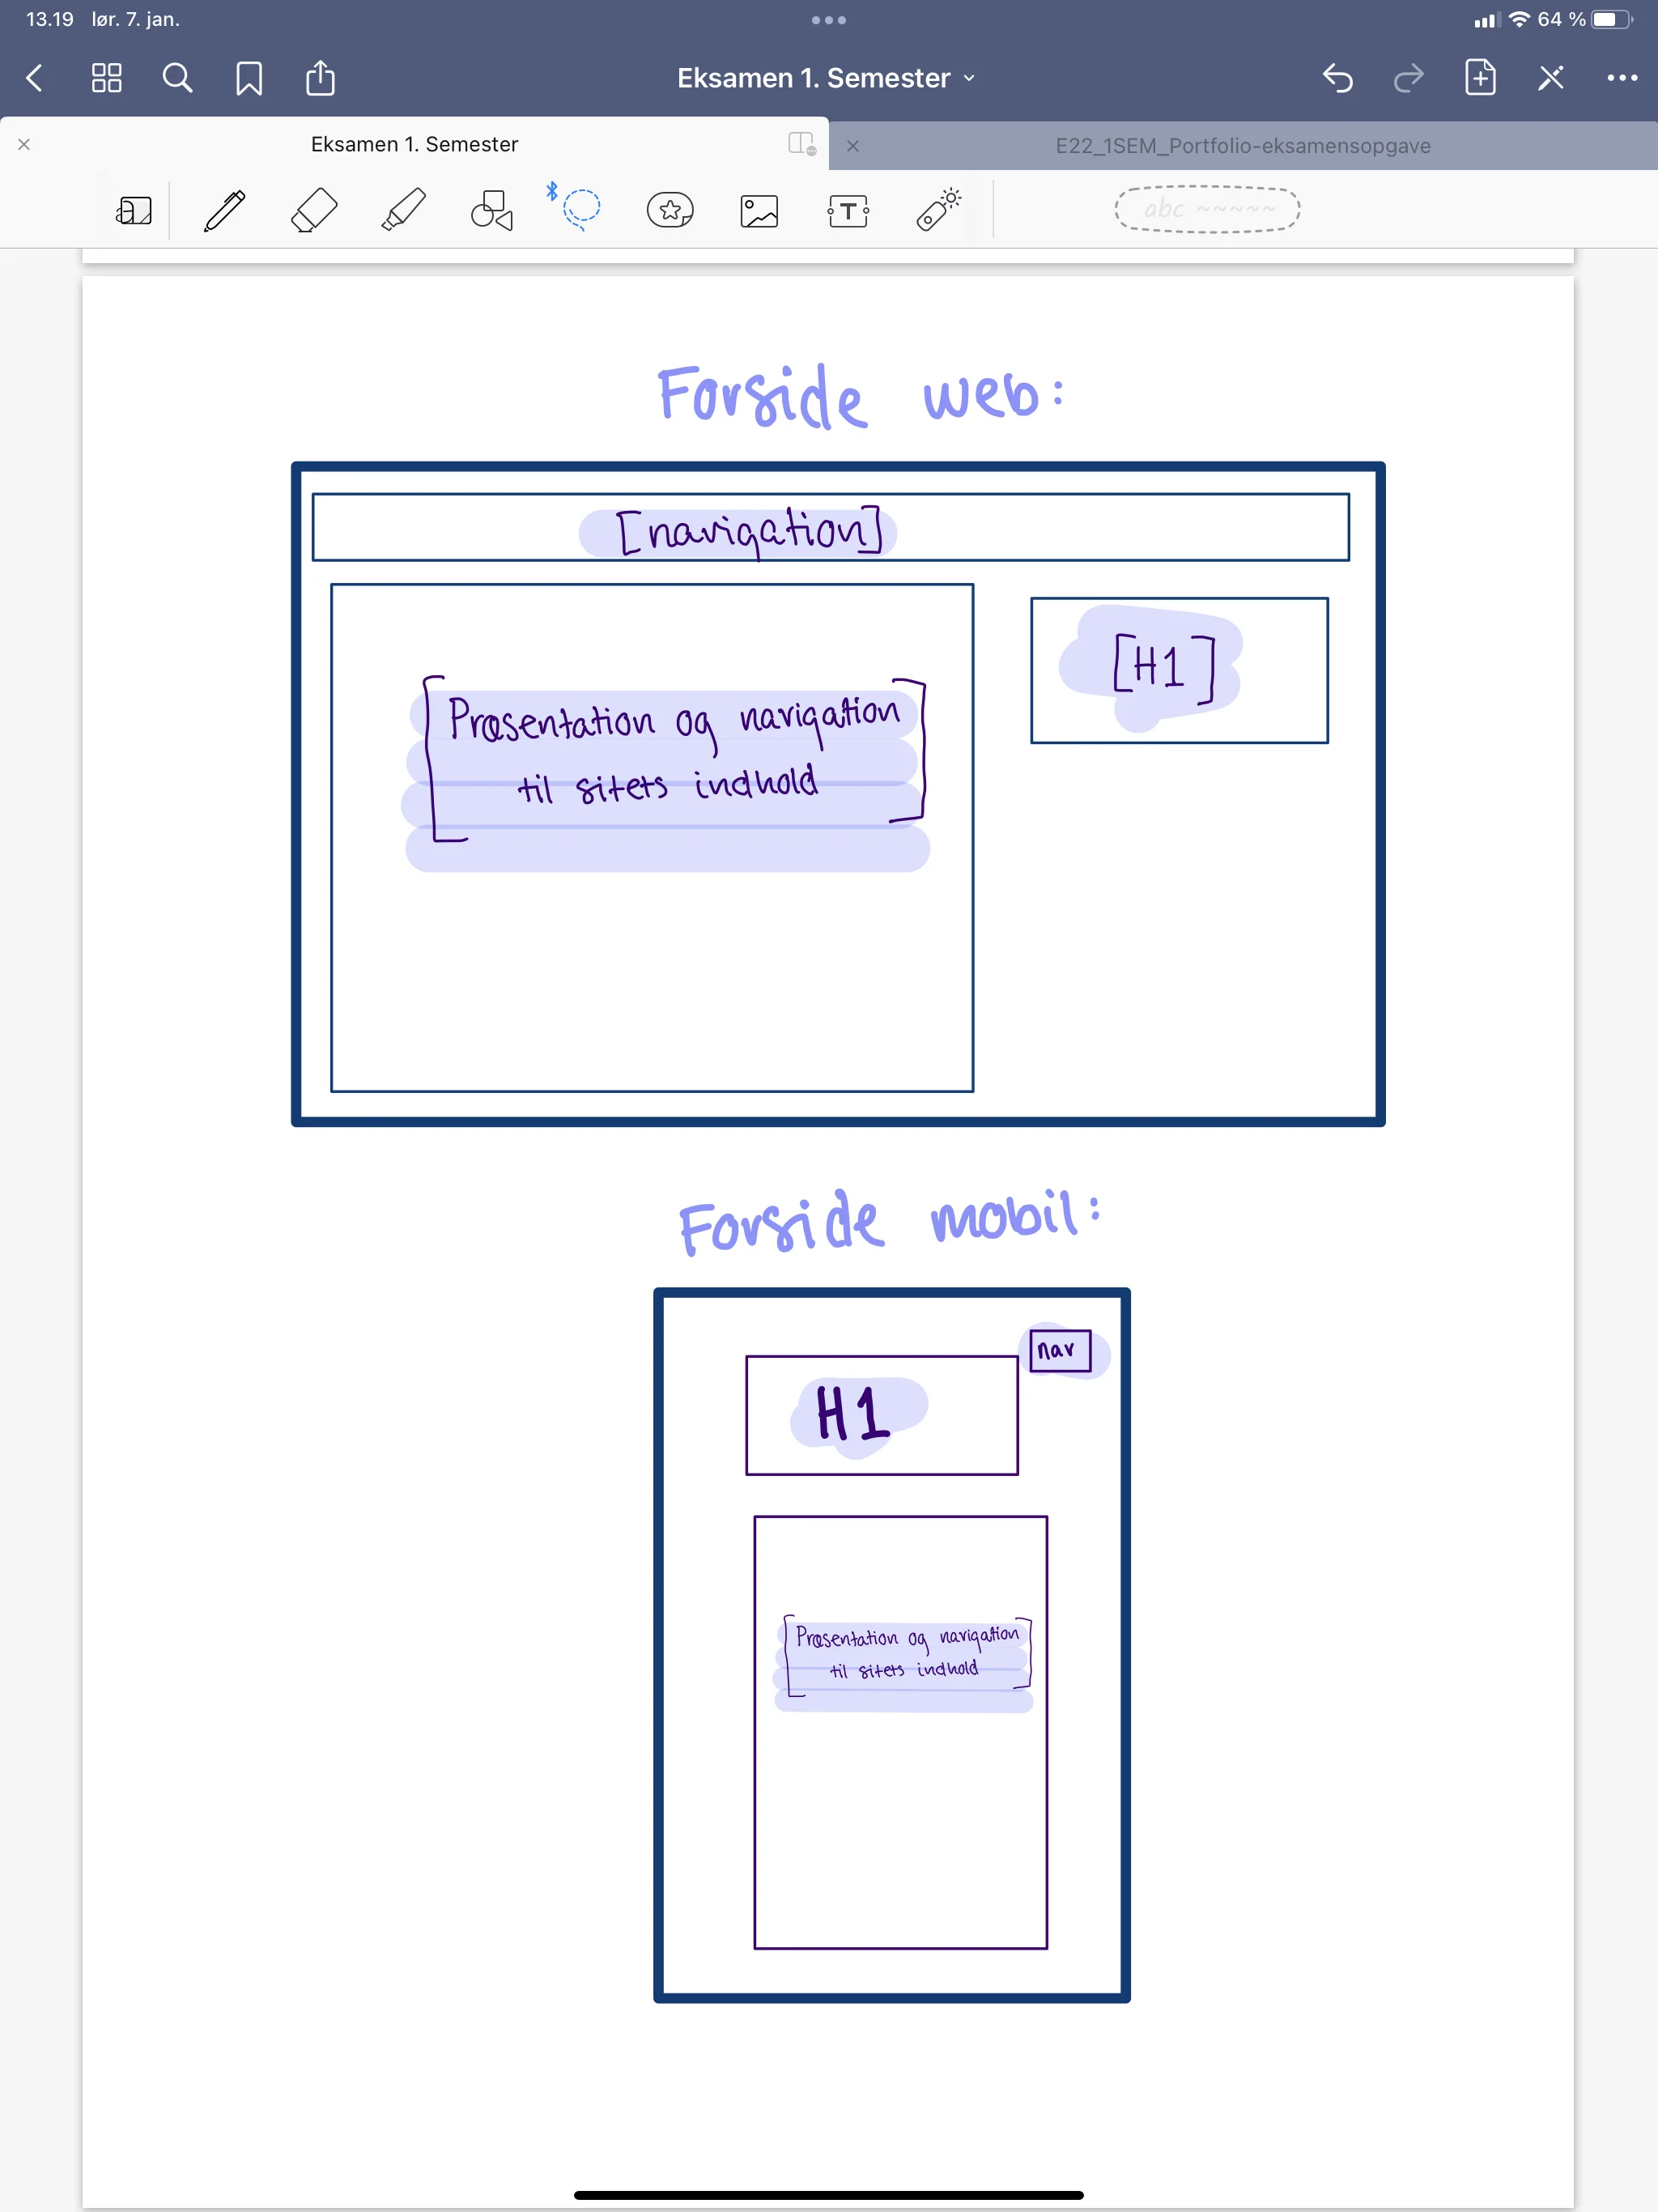 13.19 lør. 7. jan.
64 %
Eksamen 1. Semester
Eksamen 1. Semester
E22_1SEM_Portfolio-eksamensopgave
abc
Forside web:
[navigation]
[Præsentation og navigation
til sitets indhold]
[H1]
Forside mobil:
nav
H1
[Præsentation og navigation
til sitets indhold]